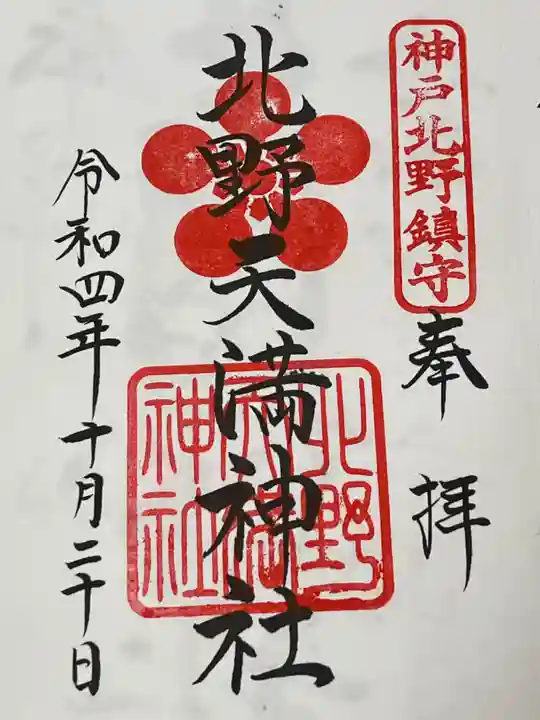 神戸北野鎮守
奉拝
北野天満神社
北野天満神社
令和四年十月二十日